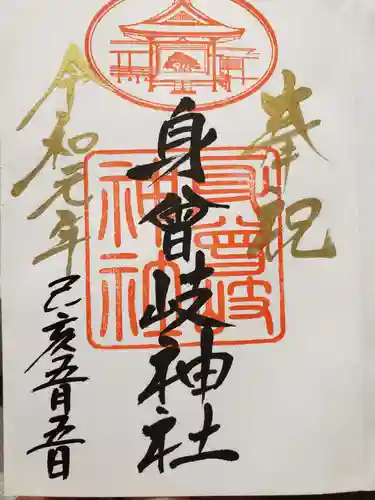 奉祝
身曾岐神社
身曾岐神社
令和元年
己亥五月五日